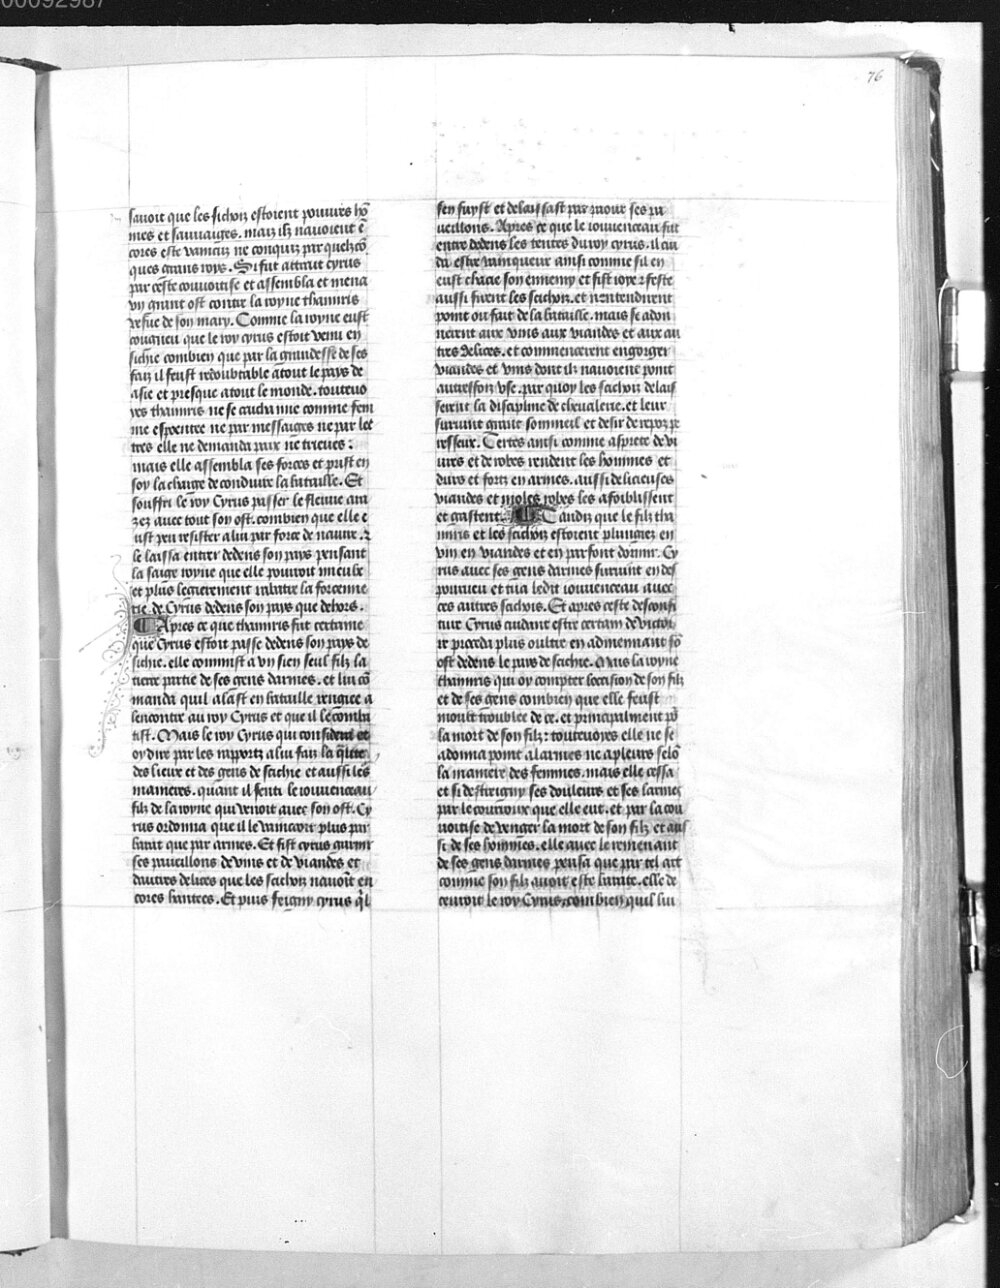 00092987
76
sauoit que les sichois estoient pouures hõ
mes et sauuaiges. mais ilz nauoient ẽ
cores este vaincuz ne conquiz par quelzcõ
ques grans roys. Si fut attrait cyrus
par ceste couuoitise et assembla et mena
vn grant ost contre la royne thamiris
vefue de son mary. Comme la royne eust
congneu que le roy cyrus estoit venu en
sichie combien que par la grandesse de ses
faiz il feust redoubtable atout le pays de
asie et presque atout le monde. touteuo
yes thamiris ne se cacha mie comme fem
me espoentee ne par messaiges ne par let
tres elle ne demanda paix ne trieues :
mais elle assembla ses forces et prist en
soy la charge de conduire la bataille. Et
souffri le roy Cyrus passer le fleuue ara
xez auec tout son ost. combien que elle e
ust peu resister a lui par force de nauire. ⁊
le laissa entrer dedens son pays pensant
la saige royne que elle pourroit mieulx
et plus legierement rabatre la forcenne
rie de Cyrus dedens son pays que dehors.
Apres ce que thamiris fut certaine
que Cyrus estoit passe dedens son pays de
sichie. elle commist a vn sien seul filz la
tierce partie de ses gens darmes. et lui cõ
manda quil alast en bataille rengiee a
lencontre au roy Cyrus et que il le comba
tist. Mais le roy Cyrus qui considera et
oy dire par les raportz a lui faiz la q̃lite
des lieux et des gens de scichie et aussi les
manieres. quant il senti le iouuenceau
filz de la royne qui venoit auec son ost. Cy
rus ordonna que il le vaincroit plus par
barat que par armes. Et fist cyrus garnir
ses paueillons de vins et de viandes et
dautres delices que les scichois nauoiẽt en
cores hantees. Et puis feigny cyrus q̃l
sen fuyst et delaissast par paour ses pa
ueillons. Apres ce que le iouuenceau fut
entre dedens les tentes du roy cyrus. il cui
da estre vainqueur ainsi comme sil en
eust chacie son ennemy et fist ioye ⁊ feste
aussi firent les scichois. et nentendirent
point ou fait de la bataille. mais se adon
nerent aux vins aux viandes et aux au
tres delices. et commencerent engorger
viandes et vins dont ilz nauoient point
autresfois vse. par quoy les scichois delais
serent la discipline de cheualerie. et leur
suruint grant sommeil et desir de repoz pa
resseux. Certes ainsi comme asprete de vi
ures et de robes rendent les hommes et
durs et fortz en armes. aussi delicieuses
viandes et moles robes les afoiblissent
et gastent. Tandis que le filz tha
miris et les scichois estoient plungiez en
vin en viandes et en parfont dormir. Cy
rus auec ses gens darmes suruint en des
pourueu et tua ledit iouuenceau auec
ces autres scichois. Et apres ceste desconfi
ture Cyrus cuidant estre certain de victoi
re proceda plus oultre en admenant sõ
ost dedens le pays de scichie. Mais la royne
thamiris qui oy compter loccision de son filz
et de ses gens combien que elle feust
moult troublee de ce. et principalment põ
la mort de son filz : touteuoyes elle ne se
adonna point a larmes ne a pleurs selõ
la maniere des femmes. mais elle cessa
et si destreigny ses douleurs et ses larmes
par le courroux que elle eut. et par la cou
uoitise de venger la mort de son filz et aus
si de ses hommes. elle auec le remenant
de ses gens darmes pensa que par tel art
comme son filz auoit este barate. elle de
ceuroit le roy Cyrus. combien quil lui